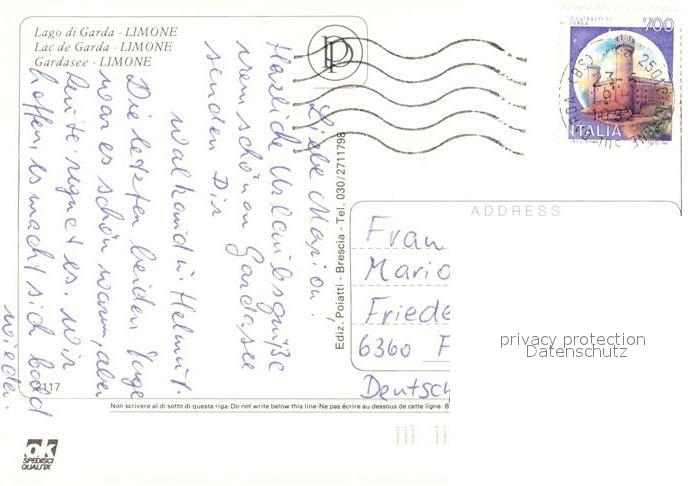 Lago di Garda - LIMONE
Lac de Garda - LIMONE
Gardasee - LIMONE
700
ITALIA
Liebe Marion!
Herzliche Urlaubsgrüße
vom schönen Gardasee
senden Dir
Waltraud u. Helmut.
Die letzten beiden Tage
war es schön warm, aber
heute regnet es. Wir
hoffen, es macht sich bald
wieder.
Ediz. Poiatti - Brescia - Tel. 030/2711798
ADDRESS
Frau
Mario
Friede
6360 F
Deutsch
privacy protection
Datenschutz
2117
Non scrivere al di sotto di questa riga-Do not write below this line-Ne pas écrire au dessous de cette ligne- B
ok
SPEDISCI
QUALITA'